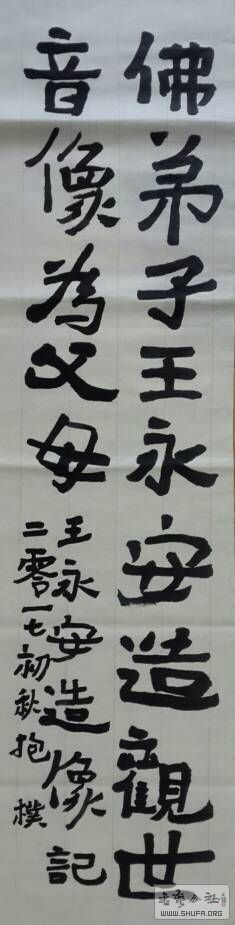 佛弟子王永安造觀世
音像為父母
王永安造像記
二零一七初秋抱樸
WWW.SHUFA.ORG